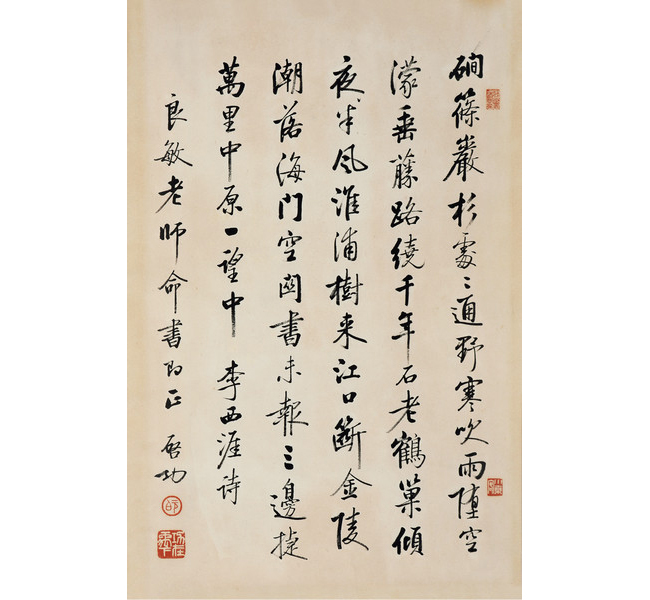 磵篠巖杉處〻通野寒吹雨墮空
濛垂藤路繞千年石老鶴巢傾
夜半風淮浦樹來江口斷金陵
潮落海門空關書未報三邊捷
萬里中原一望中 李西涯詩
良敏老師命書即正 啓功